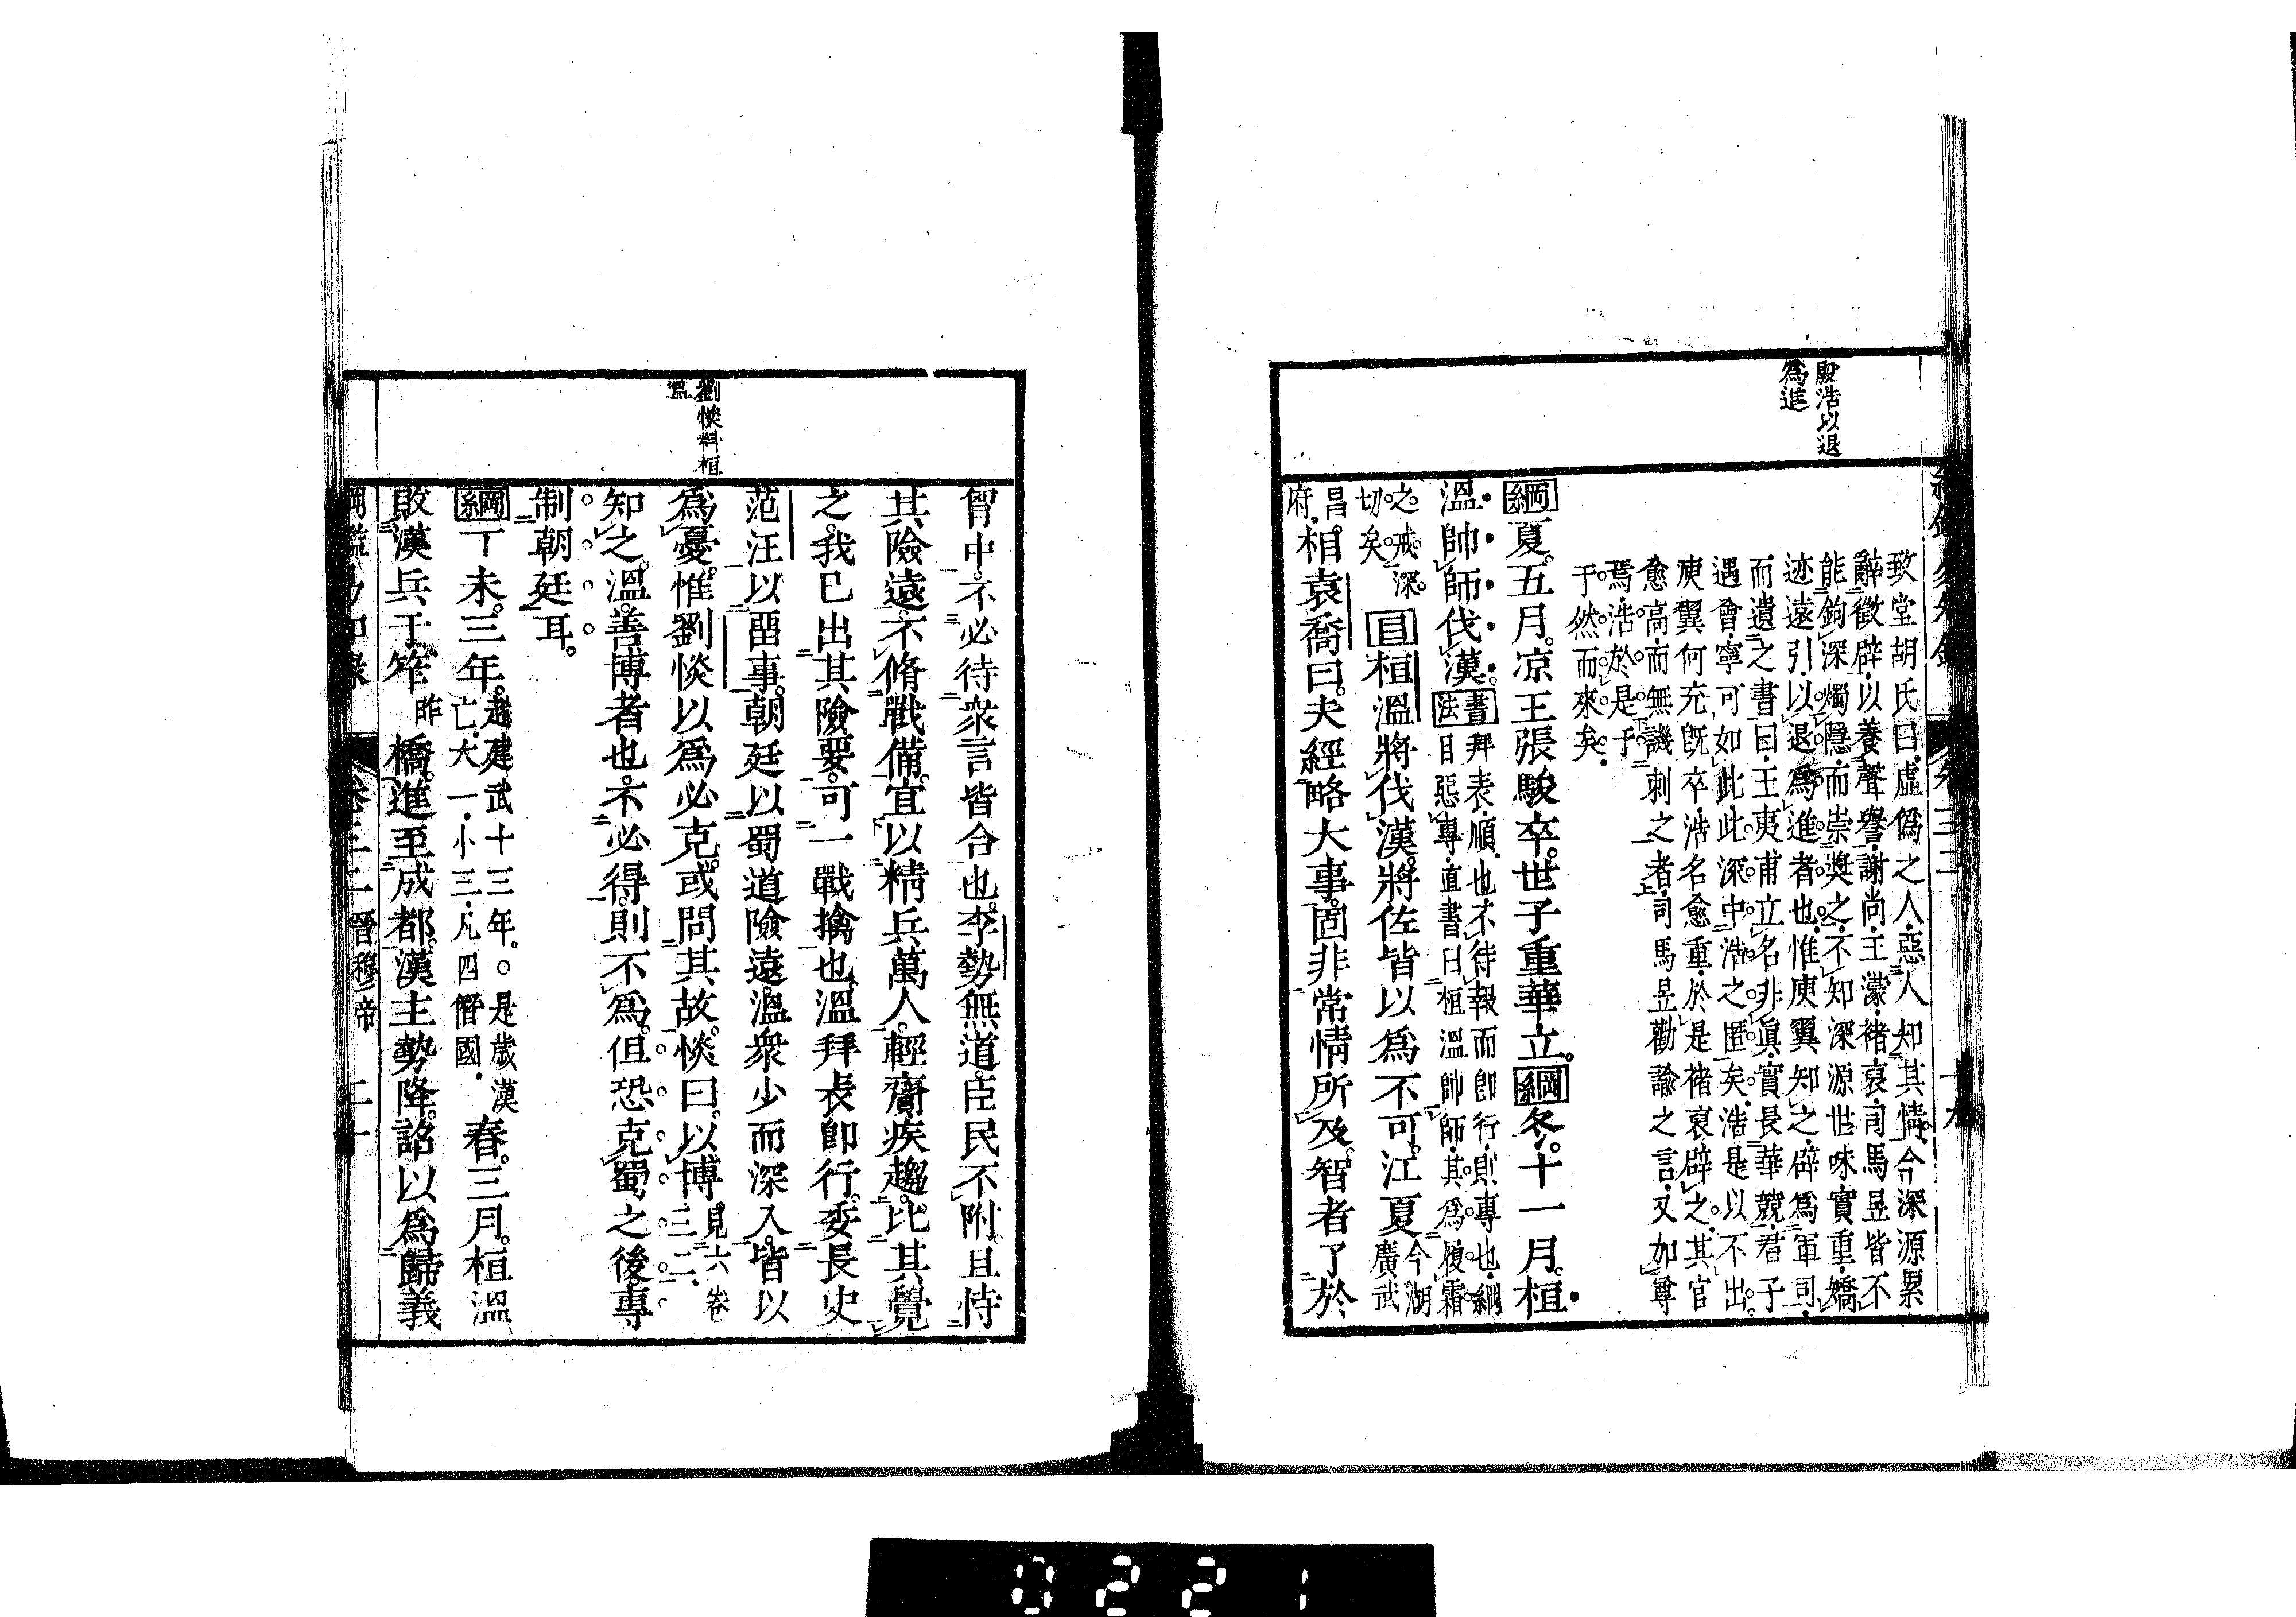 殷浩以退
爲進
致堂胡氏曰虛僞之人惡人知其情今深源累
辭徵辟以養聲譽謝尚王濛褚裒司馬昱皆不
能鉤深燭隱而崇奬之不知深源世味實重矯
迹遠引以退爲進者也惟庾翼知之辟爲軍司
而遺之書曰王夷甫立名非眞實長華競君子
遇會寧可如此此深中浩之匿矣浩是以不出
庾翼何充既卒浩名愈重於是褚裒辟之其官
愈高而無譏刺之者司馬昱勸諭之言又如尊
焉浩於是于
于然而來矣
綱夏五月凉王張駿卒世子重華立綱冬十一月桓
溫帥師伐漢
書法
拜表順也不待報而即行則專也綱
目惡專直書曰桓溫帥師其爲履霜
之戒深
切矣
目桓溫將伐漢將佐皆以爲不可江夏
今湖
廣武
昌
府
相袁喬曰夫經略大事固非常情所及智者了於
劉惔料桓
溫
胷中不必待衆言皆合也李勢無道臣民不附且恃
其險遠不脩戰備宜以精兵萬人輕齎疾趨比其覺
之我已出其險要可一戰擒也溫拜表即行委長史
范汪以畱事朝廷以蜀道險遠溫衆少而深入皆以
爲憂惟劉惔以爲必克或問其故惔曰以博
見六卷
三二
知之溫善博者也不必得則不爲但恐克蜀之後專
制朝廷耳
綱丁未三年
趙建武十三年○是歲漢
亡大一小三凡四僭國
春三月桓溫
敗漢兵于笮
昨
橋進至成都漢主勢降詔以爲歸義
晉穆帝 二十